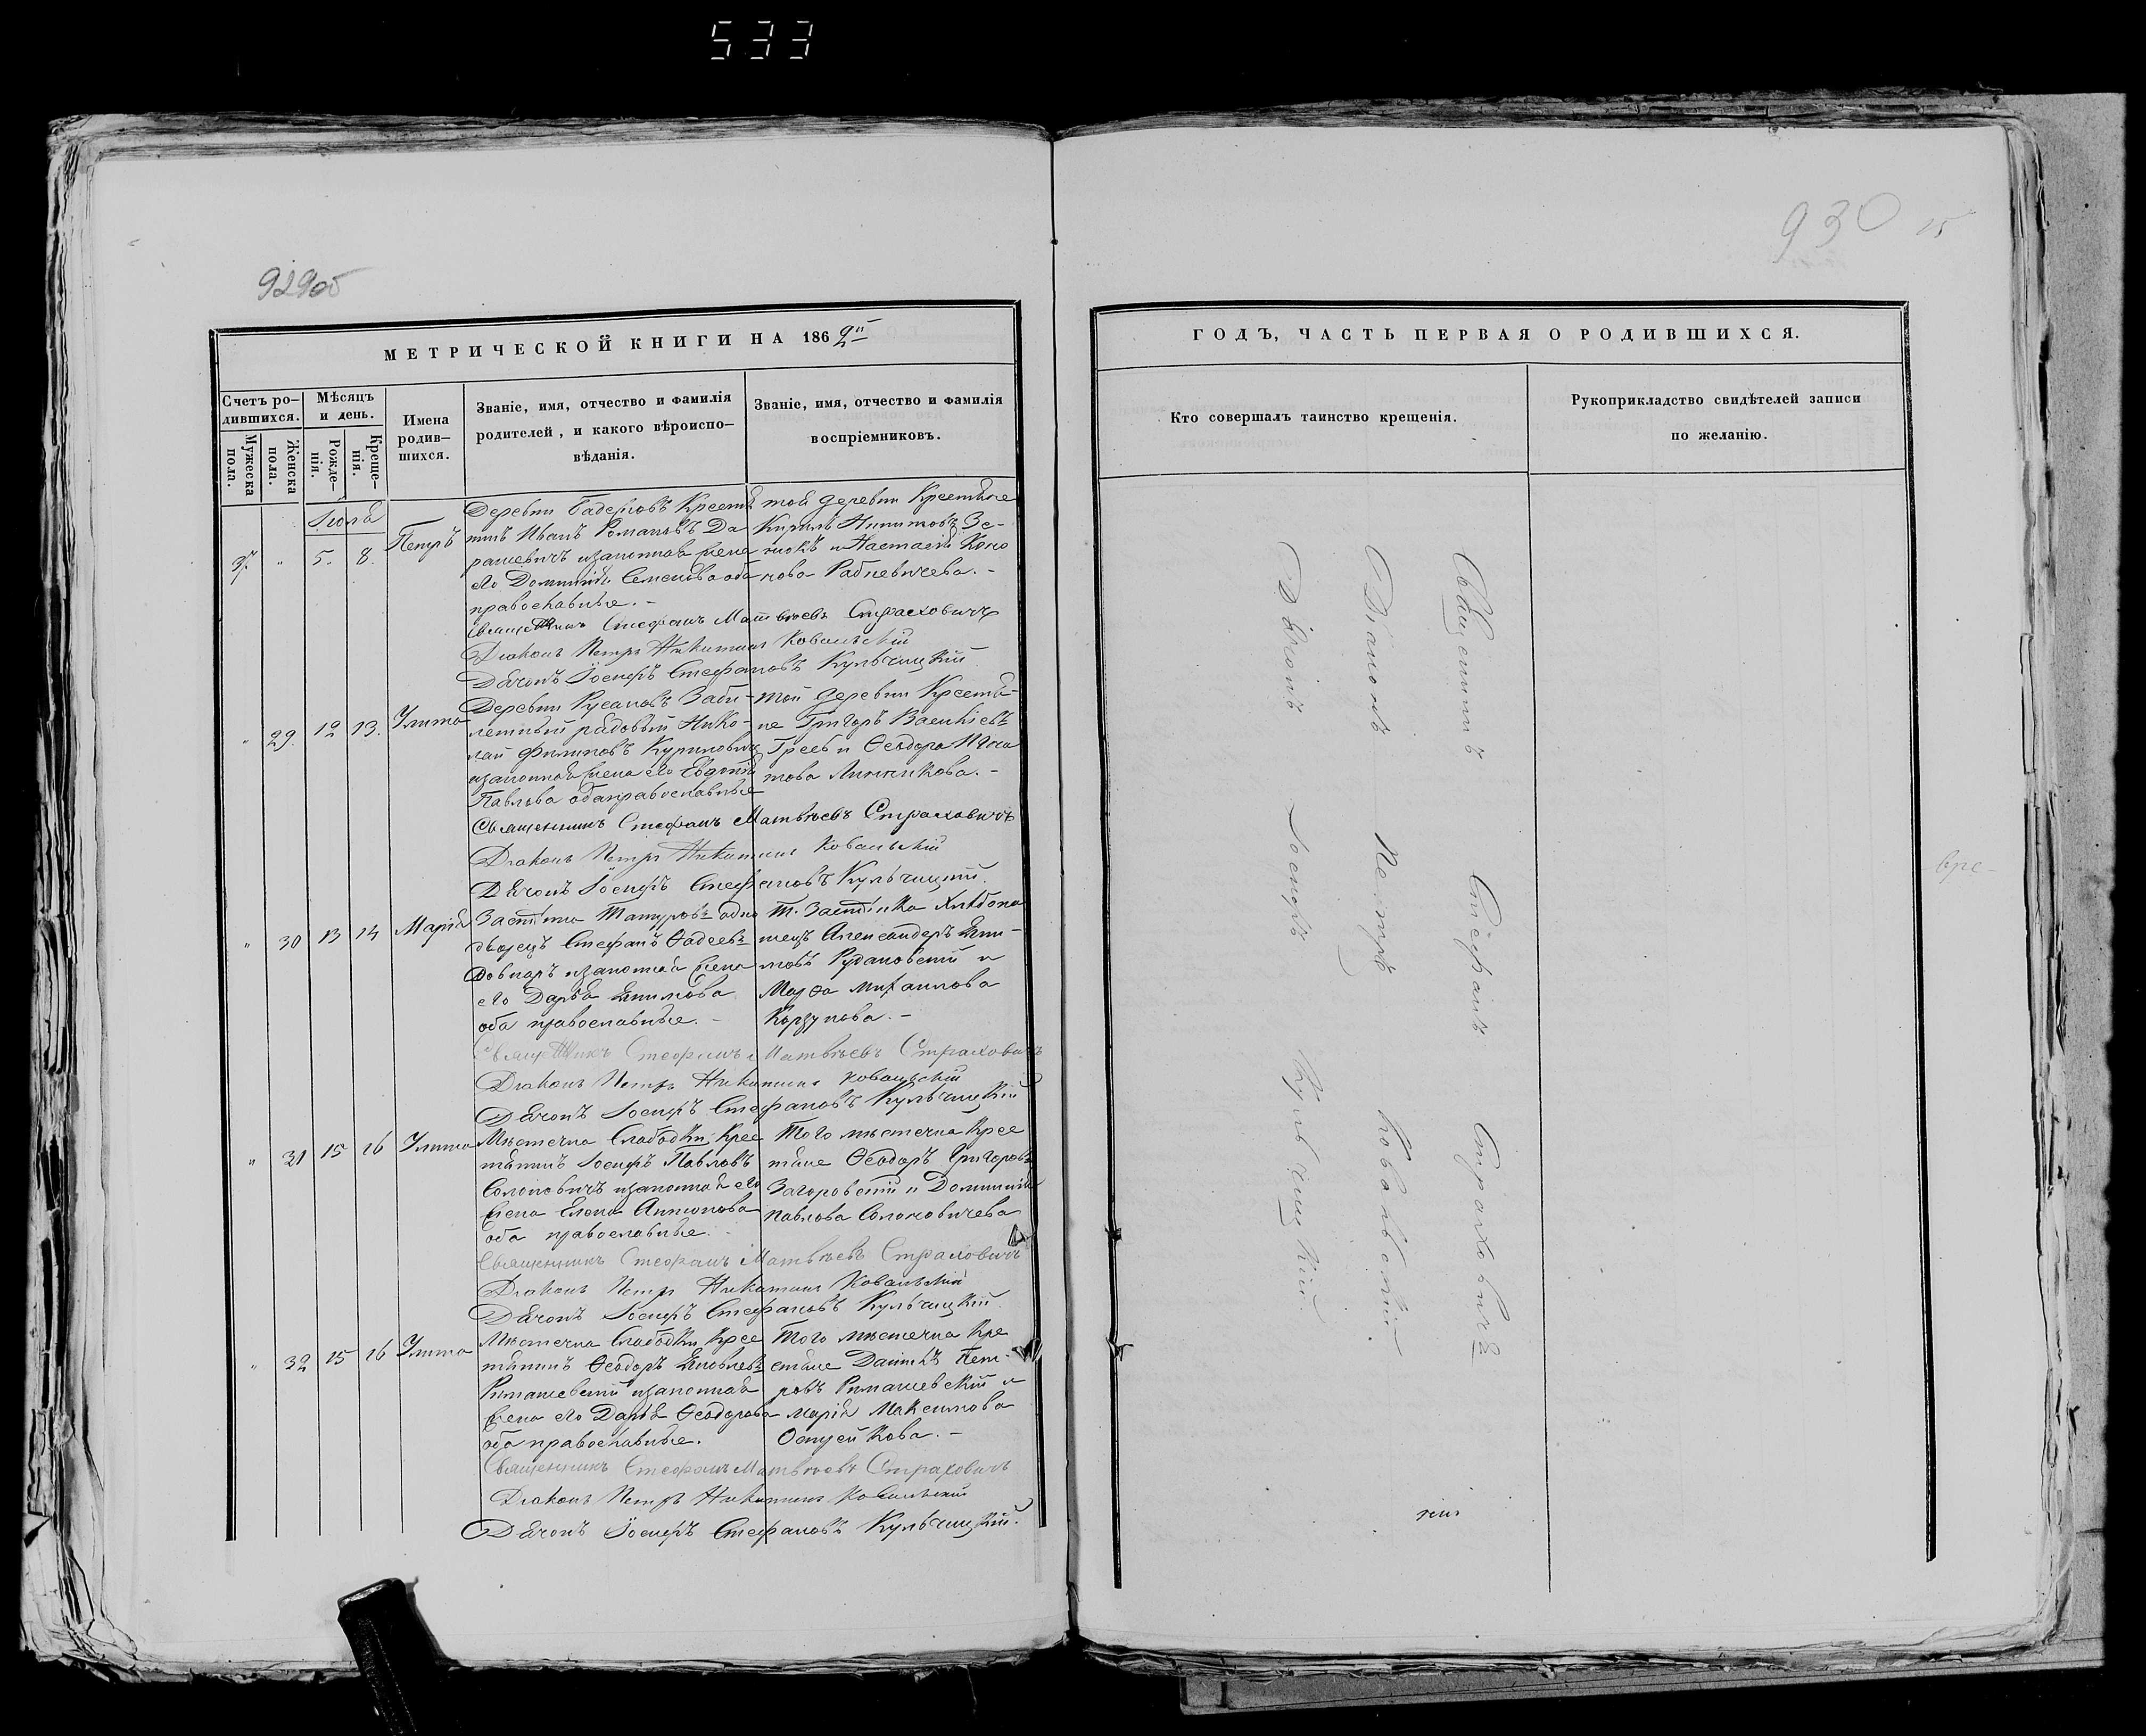 533
929об
МЕТРИЧЕСКОЙ КНИГИ НА 1862
Счетъ ро-
дившихся.
Мужеска
пола.
Женска
пола.
Мѣсяцъ
и день.
Рожде-
нія.
Креще-
нія.
Имена
родив-
шихся.
Званіе, имя, отчество и фамилія
родителей, и какого вѣроиспо-
вѣданія.
Званіе, имя, отчество и фамилія
воспріемниковъ.
Іюля
5. 8.
Петръ
Деревни Крестья
нинъ Иванъ Романовъ Да
рашевичъ изаконная жена
его Доминикія Семенова оба
православные.-
той деревни Крестьяне
Кирилъ Никитовъ
и Настасія
нова Рабцевичева.-
Священникъ Стефанъ Матвѣевъ Страховичъ
Діаконъ Петръ Никитинъ Ковальскій
Дьячокъ Іосифъ Стефановъ Кульчицкій
" 29. 12 13. Улита
Деревни Русаковъ Заби-
летный рядовый Нико-
лай Филиповъ Куриловичъ
изаконная жена его Евдокія
Павлова обаправославные
той деревни Крестья-
не Григоръ Василіевъ
Гресь и Ѳеодора Игна
това Линникова.-
Священникъ Стефанъ Матвѣевъ Страховичъ
Діаконъ Петръ Никитинъ Ковальскій
Дьячокъ Іосифъ Стефановъ Кульчицкій.
" 30 13 14 Марія
Застѣнка Татуровъ одно
дворецъ Стефанъ Ѳадеевъ
Довнаръ изаконная жена
его Дарья Якимова
оба православные.-
т. Застѣнка
Александеръ Яки-
мовъ Рудаковскій и
Марѳа Михаилова
Корзунова.-
Священникъ Стефанъ Матвѣевъ Страховичъ
Діаконъ Петръ Никитинъ Ковальскій
Дьячокъ Іосифъ Стефановъ Кульчицкій
" 31 15 16 Улита
Мѣстечка Слабодки Крес
тьянинъ Іосифъ Павловъ
Солоновичъ изаконная его
жена Елена Антонова
оба православные.
Того мѣстечка Крес
тьяне Ѳеодоръ Григоровъ
Загоровскій и Доминикія
Павлова Солоновичева
Священникъ Стефанъ Матвѣевъ Страховичъ
Діаконъ Петръ Никитинъ Ковальскій
Дьячокъ Іосифъ Стефановъ Кульчицкій
" 32 15 16 Улита
Мѣстечка Слабодки Крес
тьянинъ Ѳеодоръ Яковлевъ
Римашевскій изаконная
жена его Дарья Ѳеодорова
оба православные.
Того мѣстечка Кре
стьяне Пет-
ровъ Римашевскій и
Марія Максимова
Остусикова.-
Священникъ Стефанъ Матвѣевъ Страховичъ
Діаконъ Петръ Никитинъ Ковальскій
Дьячокъ Іосифъ Стефановъ Кульчицкій.
930
ГОДЪ, ЧАСТЬ ПЕРВАЯ О РОДИВШИХСЯ.
Кто совершалъ таинство крещенія.
Рукоприкладство свидѣтелей записи
по желанію.
Священникъ Стефанъ Страховичъ
Діаконъ Петръ Ковальскій
Дьячокъ Іосифъ Кульчицкій.